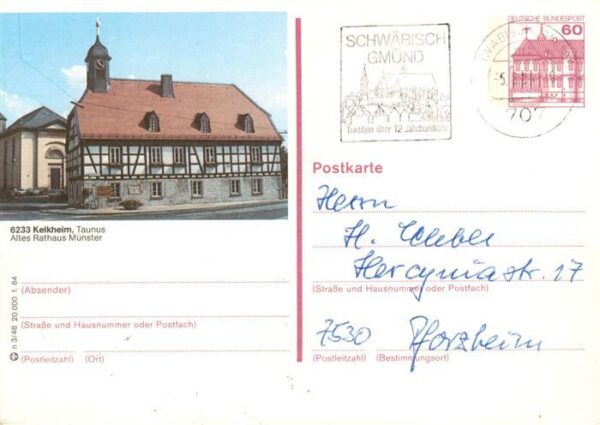 6233 Kelkheim, Taunus
Altes Rathaus Münster
(Absender)
(Straße und Hausnummer oder Postfach)
(Postleitzahl) (Ort)
n 3/48 20 000 1. 84
SCHWÄBISCH
GMÜND
Tradition über 12 Jahrhunderte
DEUTSCHE BUNDESPOST
60
Postkarte
Herrn
H.
Hercyniastr. 17
(Straße und Hausnummer oder Postfach)
7530 Pforzheim
(Postleitzahl) (Bestimmungsort)